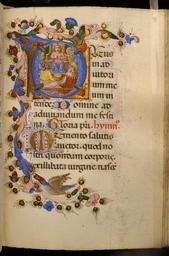 Deus
in ad
iutori
um me
um in
tende. Domine ad
adiuvandum me fesi
na. Gloria pri. hymn.
Memento salutis
auctor. quod no
stri quondam corporis.
ex illibata virgine. nasce